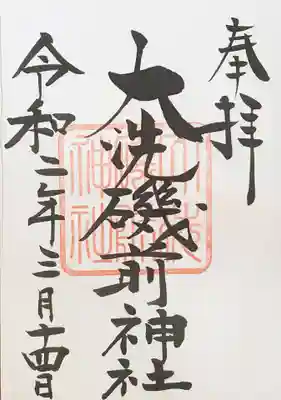 奉拝
大洗磯前神社
令和二年三月十四日